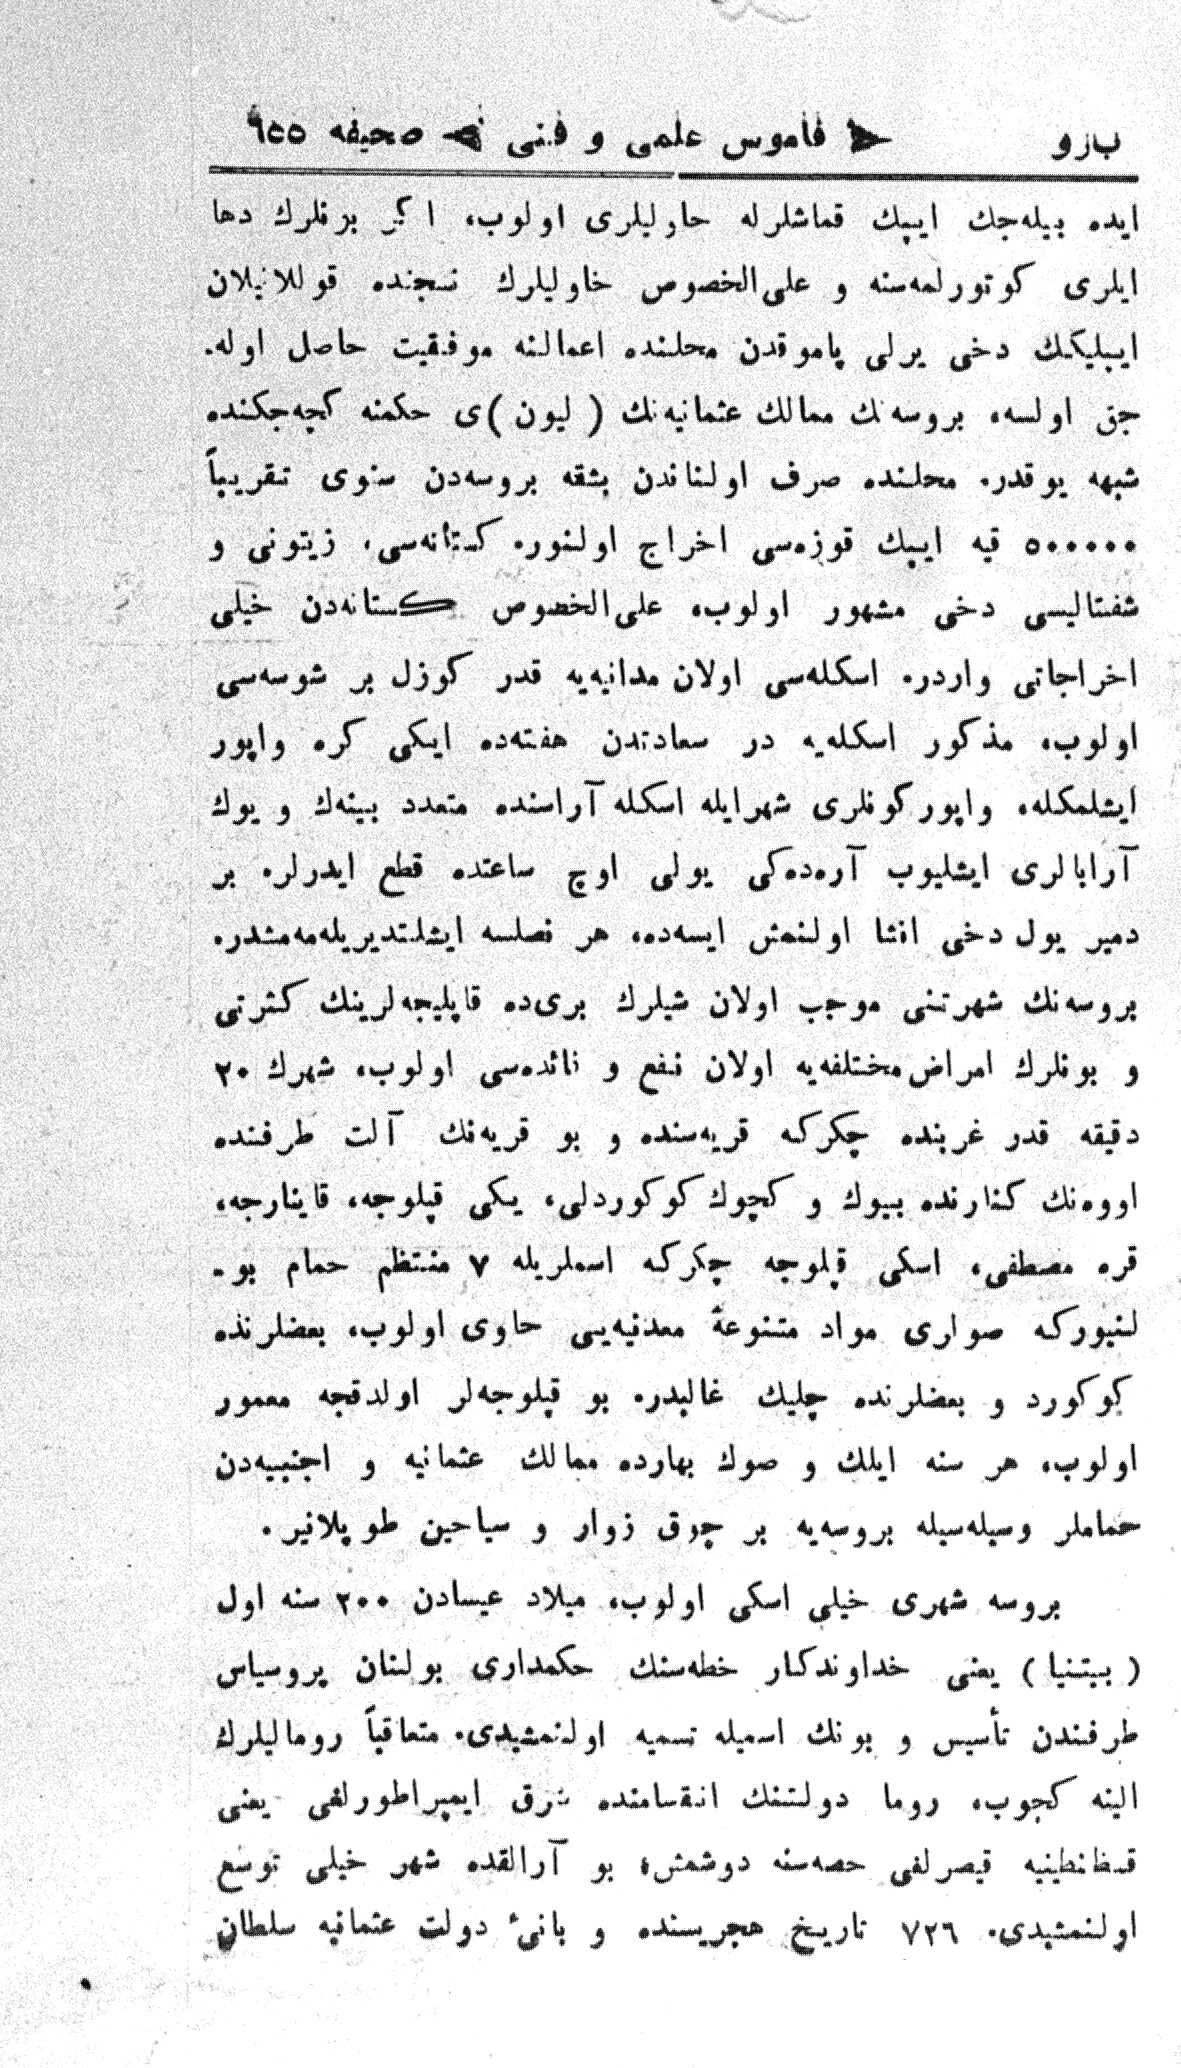 ب‌رو قاموس علمی و فنی صحیفه ٩٥٥
ایده بیله‌جك ایپك قماشلرله حاولیلری اولوب، اكر برنلرك دها
ایلری كوتورلمه‌سنه و علی‌الخصوص خاولیلرك نسجنده قوللانیلان
ایپلیكك دخی یرلی پاموقدن محلنده اعمالنه موفقیت حاصل اوله‌.
جق اولسه، بروسه‌نك ممالك عثمانیه‌نك (لیون)ی حكمنه كچه‌جكنده
شبهه یوقدر. محلنده صرف اولناندن بشقه بروسه‌دن سنوی تقریباً
٥٠٠٠٠٠ قیه ایپك قوزه‌سی اخراج اولنور. كستانه‌سی، زیتونی و
شفتالیسی دخی مشهور اولوب، علی‌الخصوص كستانه‌دن خیلی
اخراجاتی واردر. اسكله‌سی اولان مدانیه‌یه قدر كوزل بر شوسه‌سی
اولوب، مذكور اسكله‌یه در سعادتدن هفته‌ده ایكی كره واپور
ایشلمكله، واپور كونلری شهرایله اسكله آراسنده متعدد بینه‌ك و یوك
آرابالری ایشلیوب آره‌ده‌كی یولی اوچ ساعتده قطع ایدرلر. بر
دمیر یول دخی انشا اولنمش ایسه‌ده، هر نصلسه ایشلتدیریله‌مه‌مشدر.
بروسه‌نك شهرتنی موجب اولان شیلرك بری‌ده قاپلیجه‌لرینك كثرتی
و بونلرك امراض مختلفه‌یه اولان نفع و فائده‌سی اولوب، شهرك ٢٠
دقیقه قدر غربنده چكركه قریه‌سنده و بو قریه‌نك آلت طرفنده
اووه‌نك كنارنده بیوك و كچوك كوكوردلی، یكی قپلوجه، قاینارجه،
قره مصطفی، اسكی قپلوجه چكركه اسملریله ٧ منتظم حمام بو-
لنیوركه صولری مواد متنوعهٔ معدنیه‌یی حاوی اولوب، بعضلرنده
كوكورد و بعضلرنده چلیك غالبدر. بو قپلوجه‌لر اولدقجه معمور
اولوب، هر سنه ایلك و صوك بهارده ممالك عثمانیه و اجنبیه‌دن
حماملر وسیله‌سیله بروسه‌یه بر چوق زوار و سیاحین طوپلانیر.
بروسه شهری خیلی اسكی اولوب، میلاد عیسادن ٢٠٠ سنه اول
(بیتنیا) یعنی خداوندكار خطه‌سنك حكمداری بولنان پروسیاس
طرفندن تأسیس و بونك اسمیله تسمیه اولنمشیدی. متعاقباً رومالیلرك
الینه كچوب، روما دولتنك انقسامنده شرق ایمپراطورلغی یعنی
قسطنطینیه قیصرلغی حصه‌سنه دوشمش؛ بو آرالقده شهر خیلی توسع
اولنمشیدی. ٧٢٦ تاریخ هجریسنده و بانیٔ دولت عثمانیه سلطان